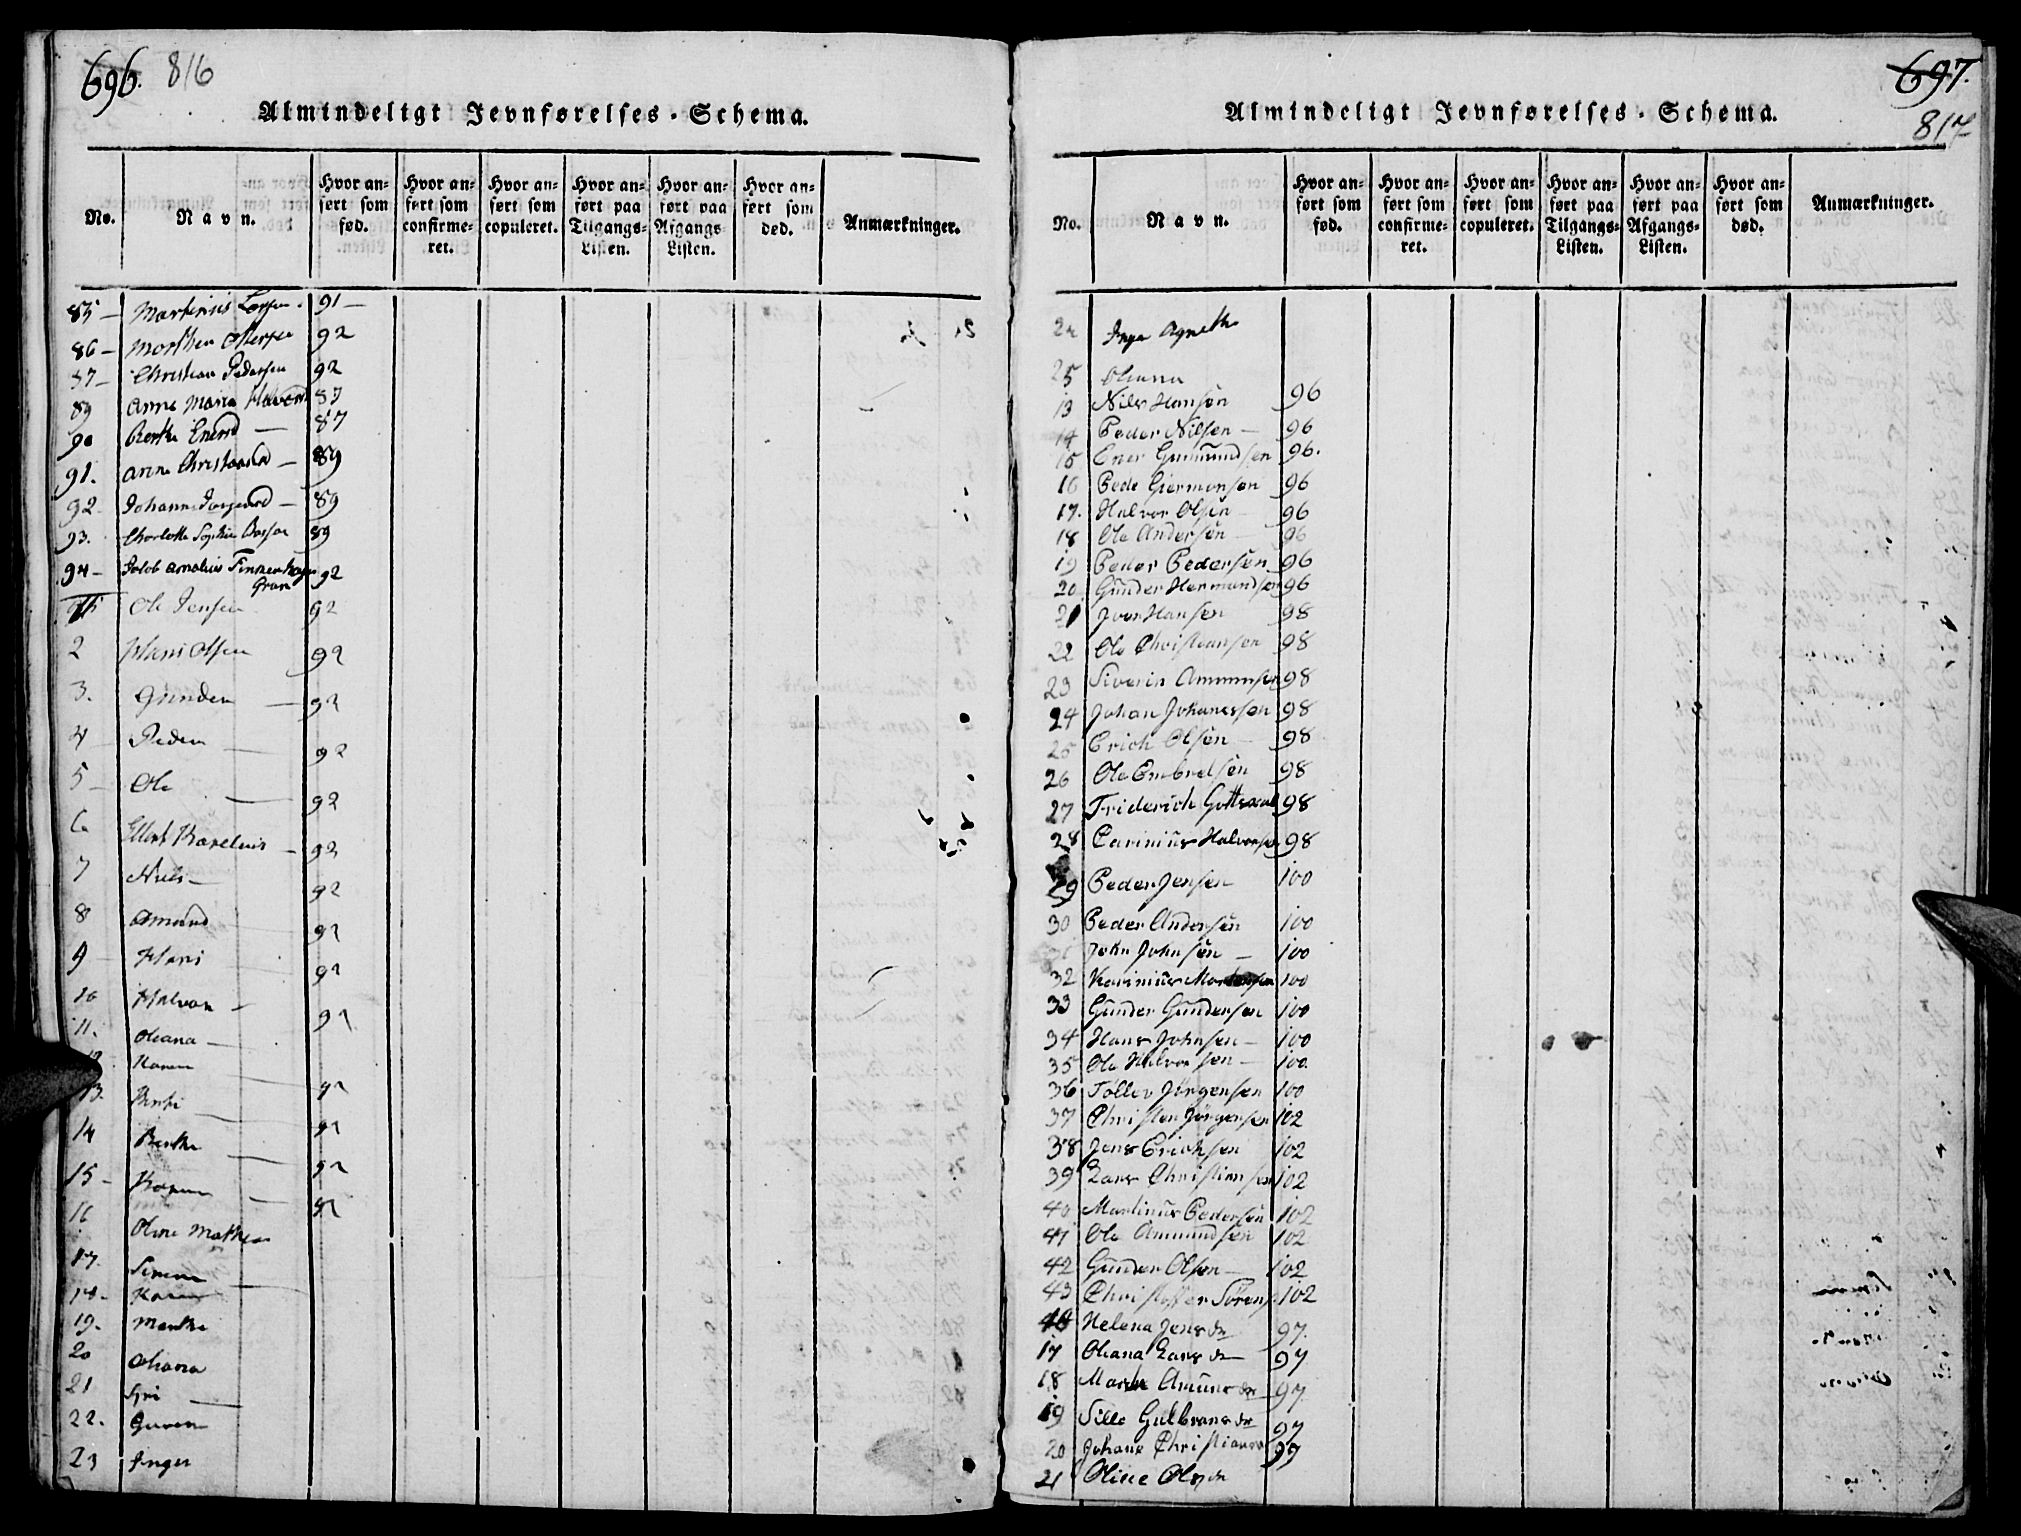 696. 816
Almindeligt Jevnførelses-Schema.
No. | Navn. | Hvor anført som fød. | Hvor anført som confirmeret. | Hvor anført som copuleret. | Hvor anført paa Tilgangs-Listen. | Hvor anført paa Afgangs-Listen. | Hvor anført som død. | Anmærkninger.
85 — Martinus 91 —
86 — Morthen 92
87 — Christian Pedersen 92
89 Anne Maria 87
90 Berthe — 87
91. Anne — 89
92. Johanne — 89
93. Charlotte Sophie 89
94 — Jacob Amalius Finkenhagen Gram 92
Ole Jensen 92
2 Hans Olsen 92
3. Gunder — 92
4 Peder — 92
5 — Ole — 92
6 — 92
7 Niels — 92
8 Amund 92
9 Hans 92
10 Halvor — 92
11. Oleana —
Karen 92
13. 92
14 Berthe — 92
15 — Karen — 92
16 Oline Mathea
17. —
18 — Karen
19. Marthe
20 Oleana
21 Siri —
22. Guren
23 Inger
697.
817
Almindeligt Jevnførelses-Schema.
No. | Navn. | Hvor anført som fød. | Hvor anført som confirmeret. | Hvor anført som copuleret. | Hvor anført paa Tilgangs-Listen. | Hvor anført paa Afgangs-Listen. | Hvor anført som død. | Anmærkninger.
24 Inger Agnethe
25 Oleana
13 Nils Hansen 96
14 Peder Nilsen — 96
15 Ener Gunmundsen 96.
16 Peder 96
17. Halvor Olsen 96
18 Ole Andersen 96
19 Peder Pedersen 96
20 Gunder Hermansen 96
21 Iver Hansen 98
22 Ole Christiansen 98
23 Siverin Ammunsen 98
24 Johan Johanessen 98
25 Erich Olsen — 98
26 Ole Embretsen 98
27 Friderich 98
28 Carinius Halvorsen 98
29 Peder Jensen 100
30 Peder Andersen 100
John Johnsen — 100
32 Karinius 100
33 Gunder Gundersen 100
34 Hans Johnsen — 100
35 Ole Halvorsen — 100.
36 Tollev Jørgensen 100
37 Christen Jørgensen 102
38 Jens Erichsen 102
39 Lars Christiansen 102
40 Martinus Pedersen 102
41 Ole Ammundsen 102
42 Gunder Olsen — 102
43 Christoffer Sørens 102
Helena Jens dr 97.
17 Oleana Lars dr 97
18 Marthe Amuns dr 97.
19 Sille Gulbrans dr 97
20 Johane Christians 97
21 Oline Ols dr